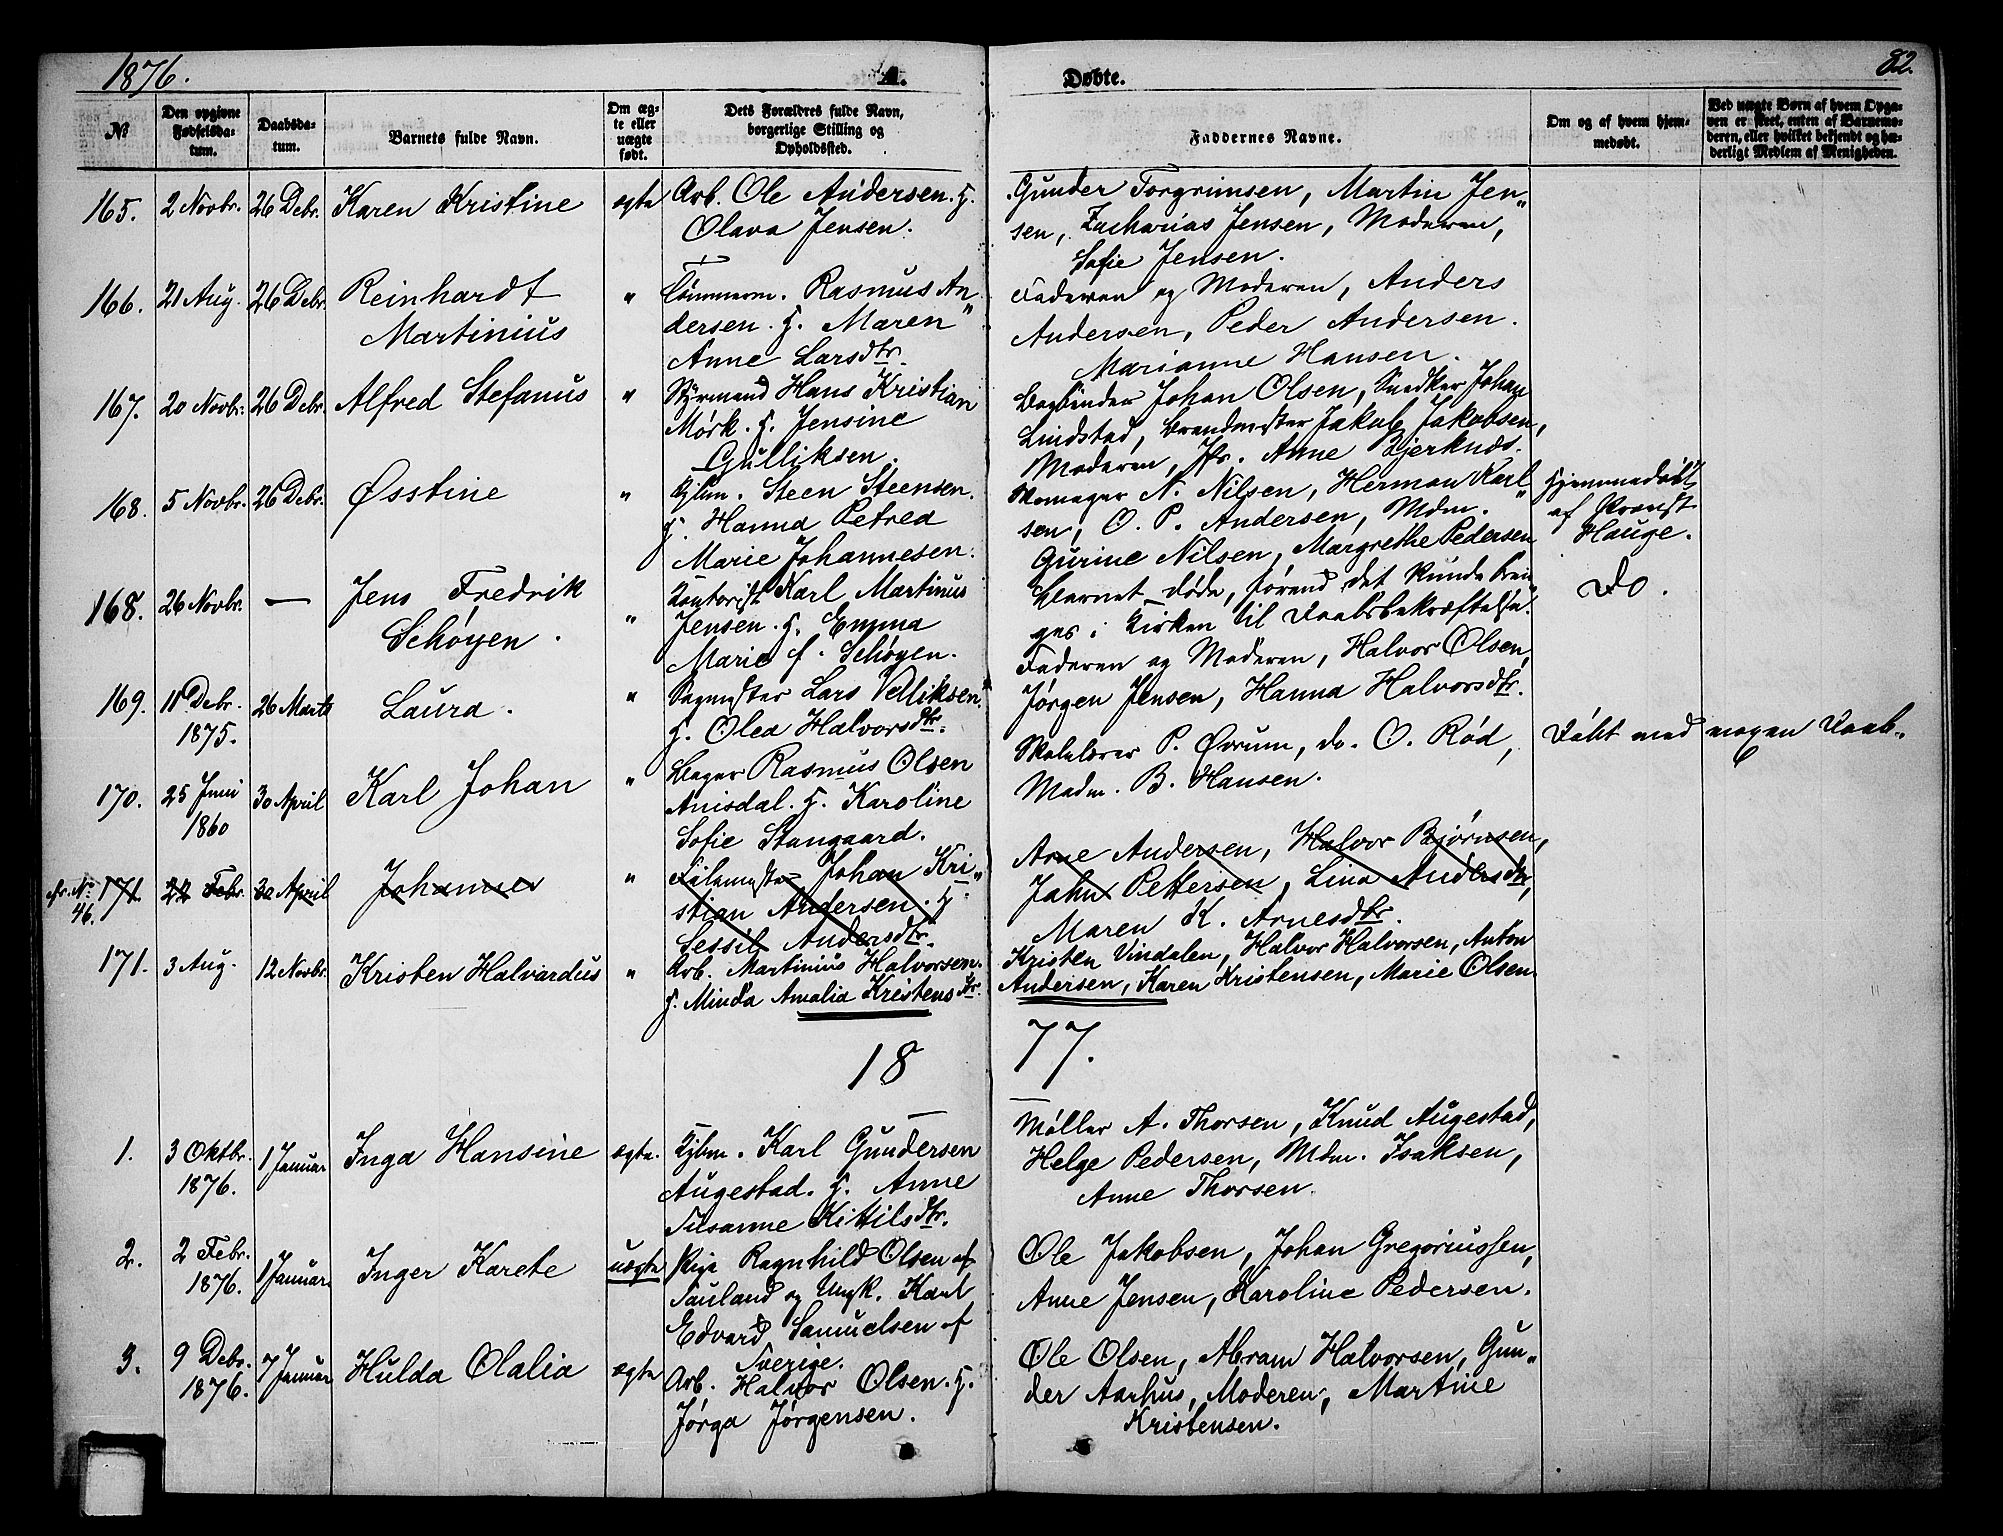 1876.
A.
Døbte.
82.
№
Den opgivne Fødselsdatum.
Daabsdatum.
Barnets fulde Navn.
Om ægte eller uægte født.
Dets Forældres fulde Navn, borgerlige Stilling og Opholdssted.
Faddernes Navne.
Om og af hvem hjemmedøbt.
Ved uægte Børn af hvem Opgaven er skeet, enten af Barnemoderen, eller hvilket bekjendt og hæderligt Medlem af Menigheden.
165. 2 Novbr. 26 Debr. Karen Kristine ægte
Arb. Ole Andersen. H.
Olava Jensen.
Gunder Torgrimsen, Martin Jen„
sen, Zacharias Jensen, Moderen,
Sofie Jensen.
166. 21 Aug. 26 Debr. Reinhardt
Martinius
"
Tømmerm. Rasmus An„
dersen. H. Maren
Anne Larsdtr.
Faderen og Moderen, Anders
Andersen, Peder Andersen.
Marianne Hansen.
167. 20 Novbr. 26 Debr. Alfred Stefanus "
Styrmand Hans Kristian
Mørk. H. Jensine
Gulliksen.
Bogbinder Johan Olsen, Snedker Johan
Lindstad, Brandmester Jakob Jakobsen,
Moderen, Jfr. Anne Bjerknæs.
168. 5 Novbr. 26 Debr. Øsstine "
Gjbm. Steen Steensen.
H. Hanna Petrea
Marie Johannesen.
Skomager N. Nilsen, Herman Karl„
sen, O. P. Andersen, Mdm.
Gurine Nilsen, Margrethe Pedersen
Hjemmedøbt
af Provst
Hauge.
168. 26 Novbr. — Jens Fredrik
Schøyen.
"
Kontorist Karl Martinus
Jensen. H. Emma
Marie f. Schøyen.
Barnet døde, førend det kunde brin„
ges i Kirken til Daabsbekræftelse.
Do.
169. 11 Debr.
1875.
26 Marts Laura. "
Sagmester Lars Velliksen.
H. Olea Halvorsdtr.
Faderen og Moderen, Halvor Olsen,
Jørgen Jensen, Hanna Halvorsdtr.
170. 25 Juni
1860
30 April Karl Johan "
Bager Rasmus Olsen
Anisdal. H. Karoline
Sofie Stangaard.
Skolelærer P. Øvrum, do. O. Rød,
Madm. B. Hansen.
Døbt med nogen Daab„
cfr. No.
46.
171. 22 Febr. 30 April Johannes "
Johan Kri„
stian Andersen. H.
Sessil Andersdtr.
Arne Andersen, Halvor Bjørnsen,
John Pettersen, Lina Andersdtr,
Maren K. Arnesdtr.
171. 3 Aug. 12 Novbr. Kristen Halvardus "
Arb. Martinius Halvorsen.
H. Minda Amalia Kristensdtr.
Kristen Vindalen, Halvor Halvorsen, Anton
Andersen, Karen Kristensen, Marie Olsen
18
77.
1. 3 Oktbr.
1876.
1 Januar Inga Hansine ægte.
Gjbm. Karl Gundersen
Augestad. H. Anne
Susanne Kittilsdtr.
Møller A. Thorsen, Knud Augestad,
Helge Pedersen, Mdm. Isaksen,
Anne Thorsen.
2. 2 Febr.
1876.
1 Januar Inger Karete uægte
Pige Ragnhild Olsen af
Sauland og Ungk. Karl
Edvard Samuelsen af
Sverige.
Ole Jakobsen, Johan Gregoriussen,
Anne Jensen, Karoline Pedersen.
3. 9 Debr.
1876.
7 Januar Hulda Olalia ægte
Arb. Halvor Olsen. H.
Jørga Jørgensen.
Ole Olsen, Abram Halvorsen, Gun„
der Aarhus, Moderen, Martine
Kristensen.